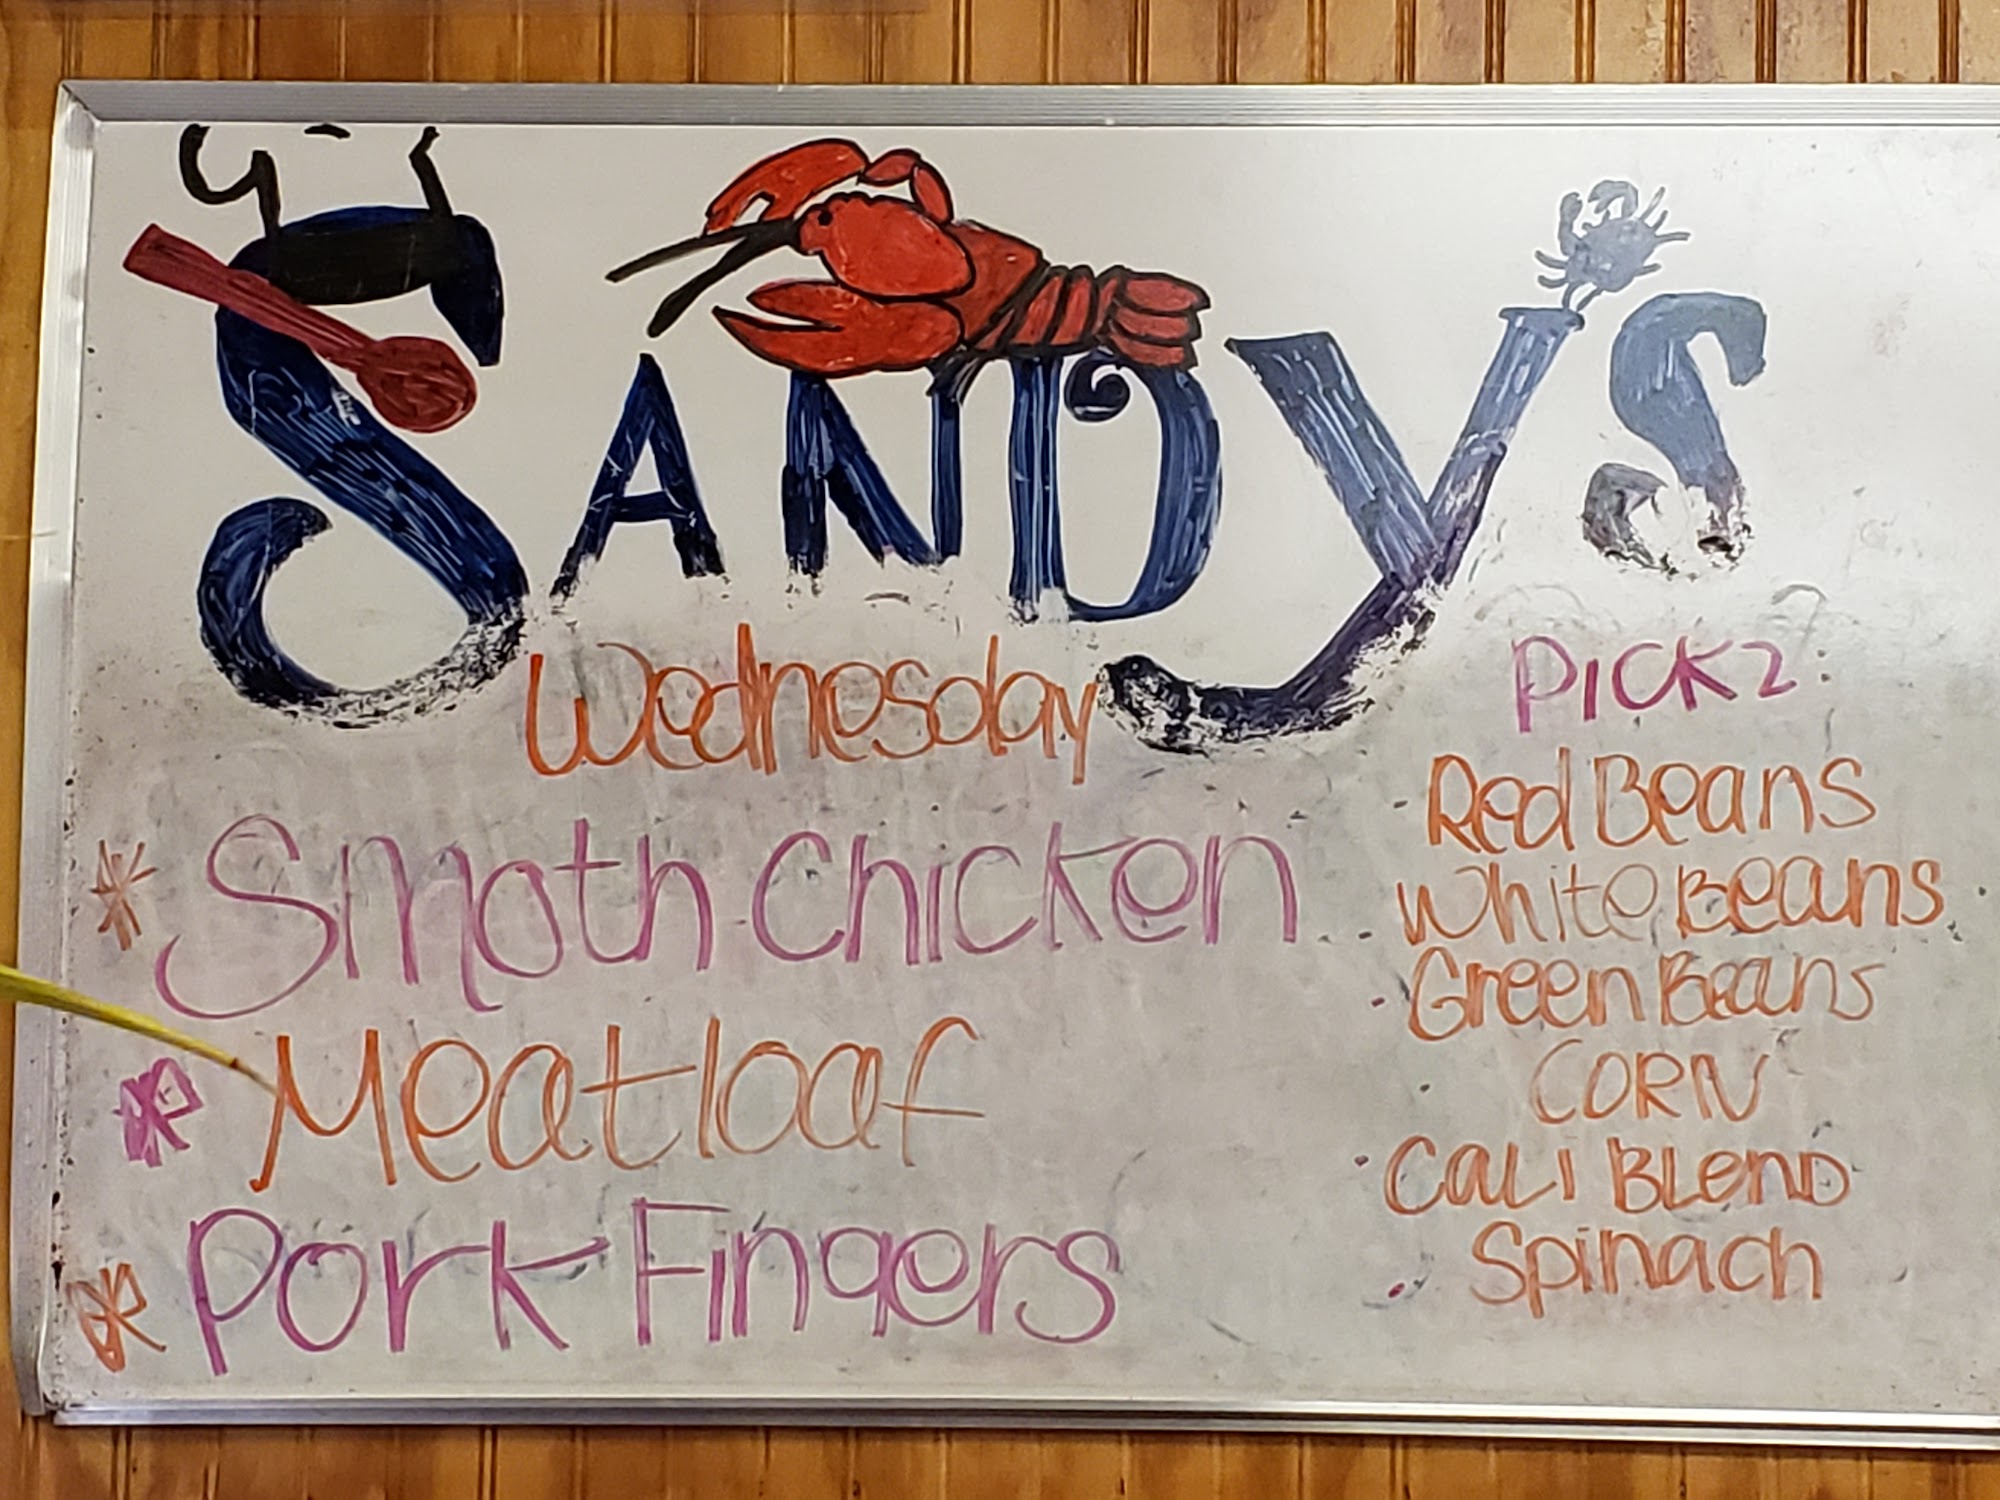 SANDY'S
Wednesday
* Smoth Chicken
OR Meatloaf
OR Pork Fingers
PICK 2:
Red Beans
White Beans
Green Beans
CORN
Cali Blend
Spinach